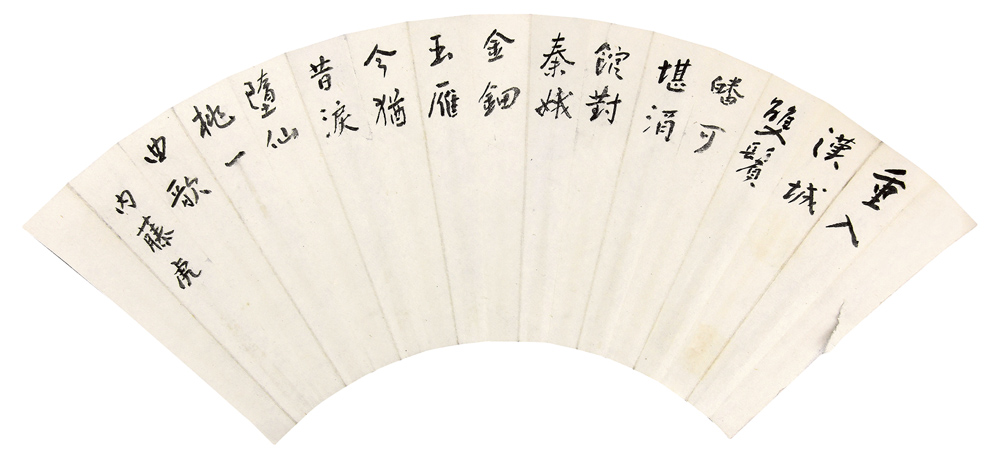 重入
漢城
雙鬢
皤可
堪
館對
秦娥
金鈿
玉雁
今猶
昔淚
墮仙
桃一
曲歌
内藤虎